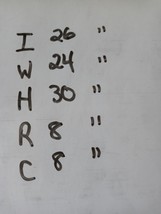 I 26 "
W 24 "
H 30 "
R 8 "
C 8 "